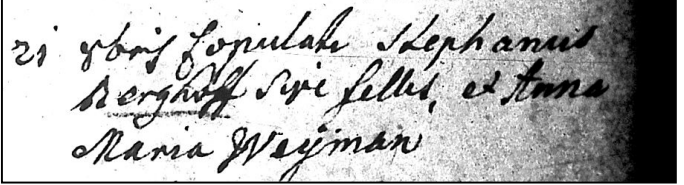 21 xbris Copulati Stephanus
Berghoff sive fellis, et Anna
Maria Weÿman